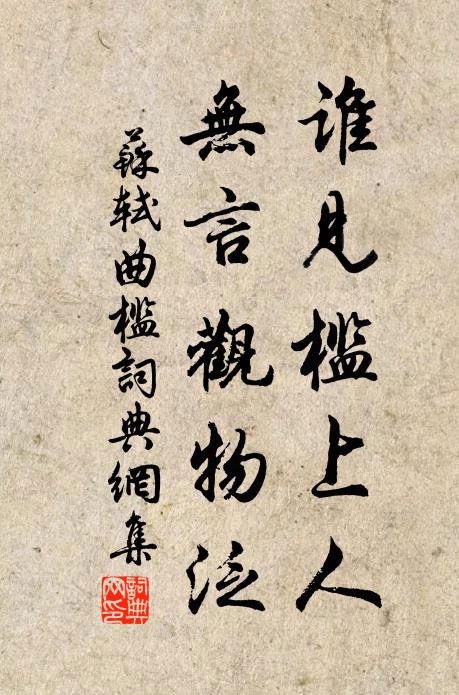 誰見檻上人
無言觀物泛
蘇軾曲檻詞典網集
詞典網印